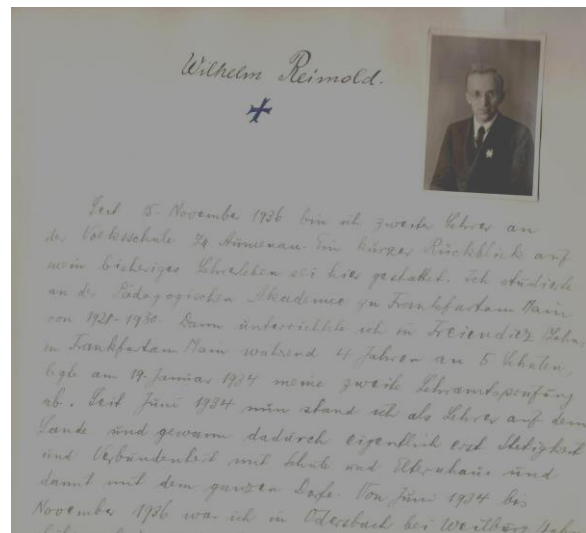 Wilhelm Reimold.
Seit 15. November 1936 bin ich zweiter Lehrer an
der Volksschule zu Aumenau. Ein kurzer Rückblick auf
mein bisheriges Lehrerleben sei hier gestattet. Ich studierte
an der Pädagogischen Akademie zu Frankfurt am Main
von 1928-1930. Dann unterrichtete ich in Freiendiez Lahn,
in Frankfurt am Main während 4 Jahren an 5 Schulen,
legte am 19. Januar 1934 meine zweite Lehramtsprüfung
ab. Seit Juni 1934 nun stand ich als Lehrer auf dem
Lande und gewann dadurch eigentlich erst Stetigkeit
und Verbundenheit mit Schule und Elternhaus und
damit mit dem ganzen Dorfe. Von Juni 1934 bis
November 1936 war ich in Odersbach bei Weilburg Lahn